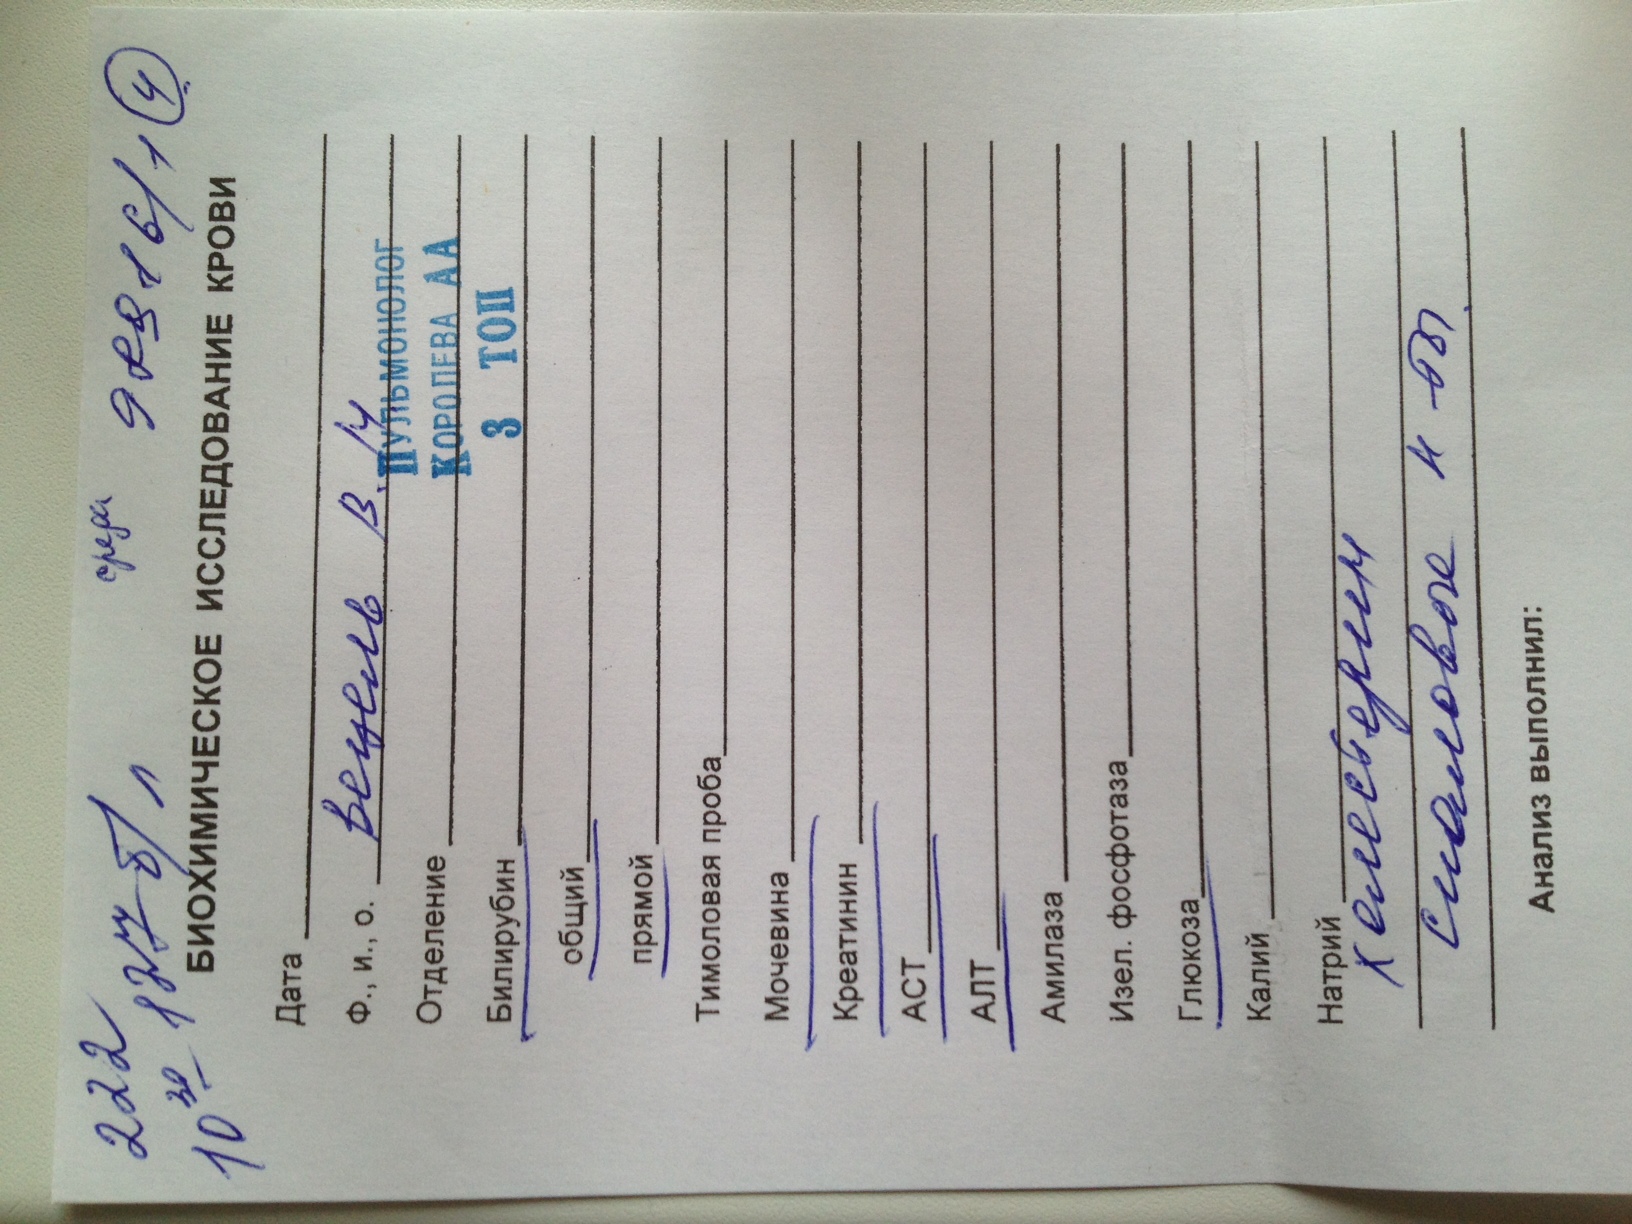 222
среда
98916/1 4
10 30 - 127 б/л
БИОХИМИЧЕСКОЕ ИССЛЕДОВАНИЕ КРОВИ
Дата
Ф., и., о. Вецель В. И
ПУЛЬМОНОЛОГ
Отделение
КОРОЛЕВА АА
Билирубин
3 ТОП
общий
прямой
Тимоловая проба
Мочевина
Креатинин
АСТ
АЛТ
Амилаза
Изел. фосфотаза
Глюкоза
Калий
Натрий
холестерин
сиаловые к-ты
Анализ выполнил: